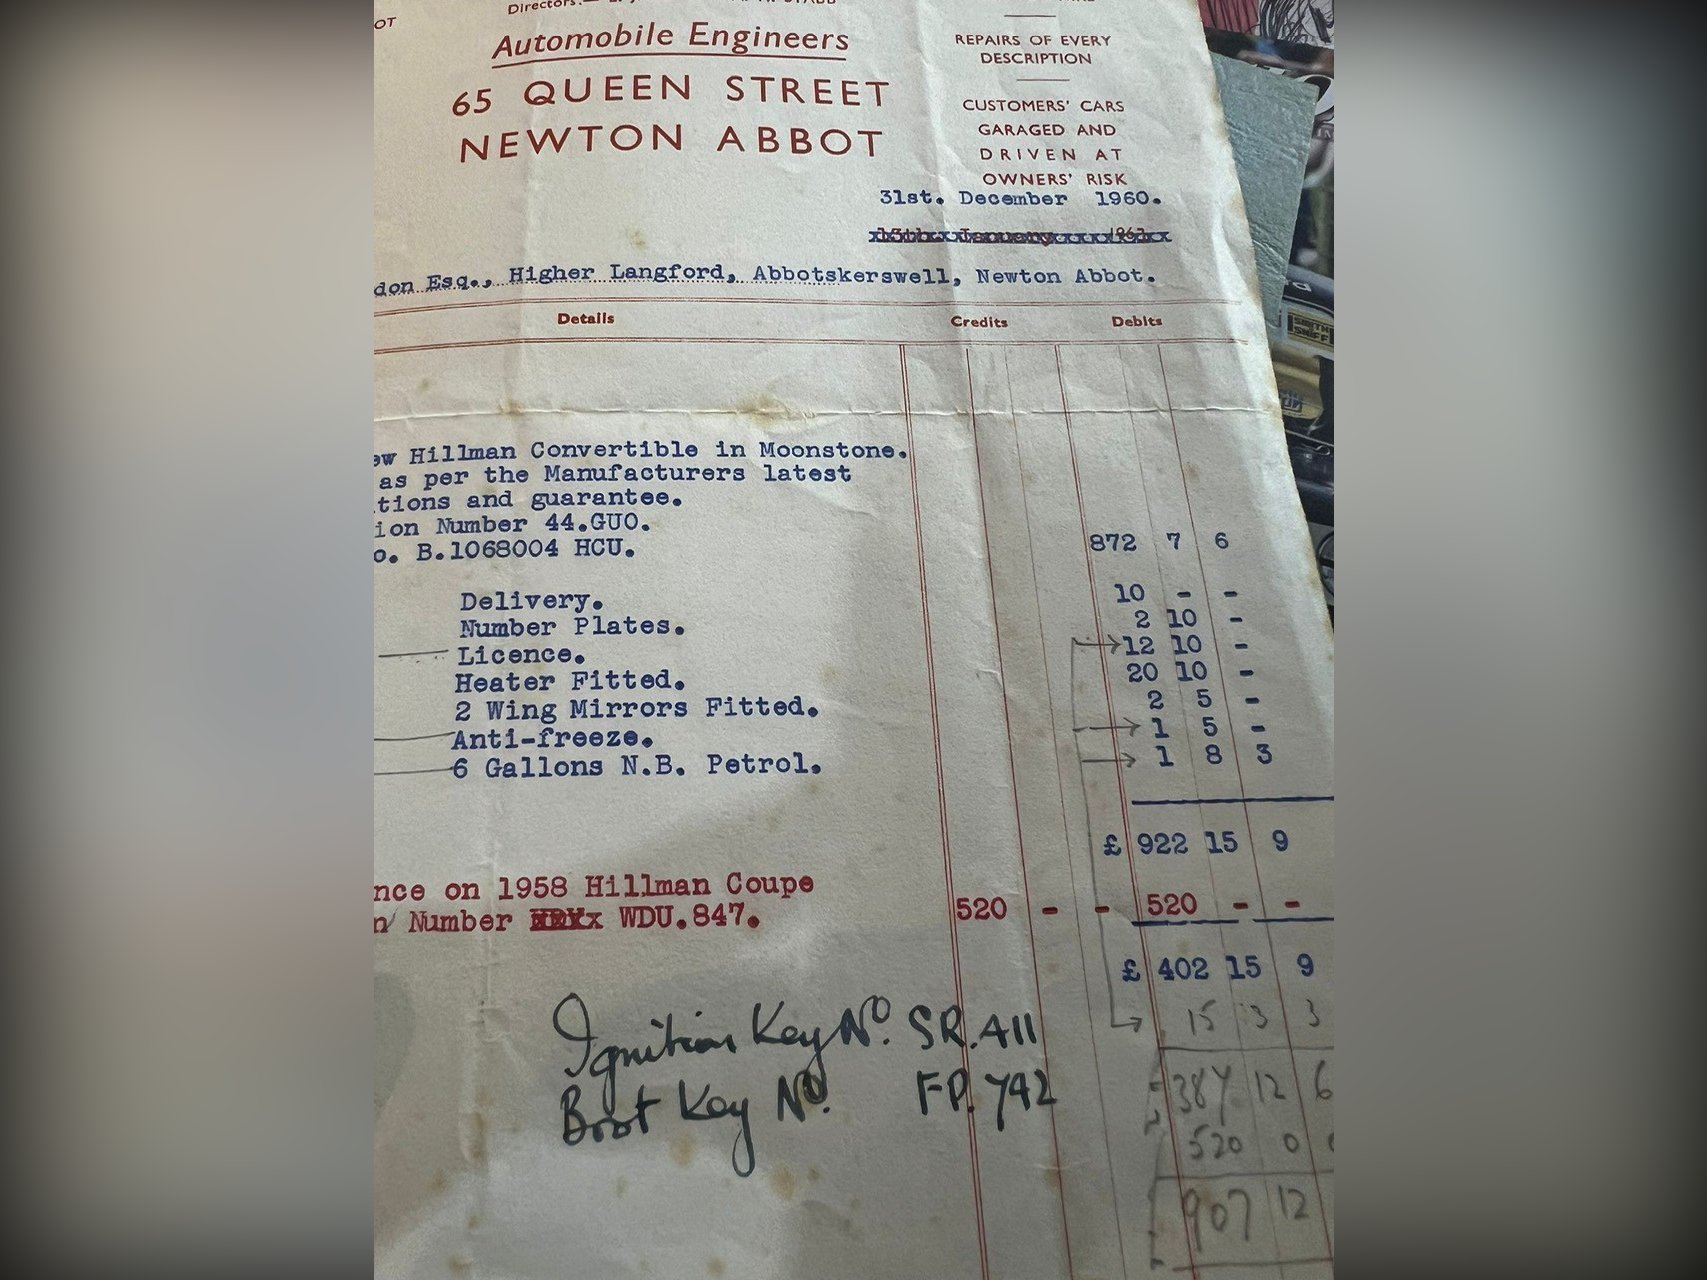 OT
Directors:—
Automobile Engineers
65 QUEEN STREET
NEWTON ABBOT
REPAIRS OF EVERY
DESCRIPTION
CUSTOMERS' CARS
GARAGED AND
DRIVEN AT
OWNERS' RISK
31st. December 1960.
don Esq., Higher Langford, Abbotskerswell, Newton Abbot.
Details Credits Debits
ew Hillman Convertible in Moonstone.
as per the Manufacturers latest
tions and guarantee.
ion Number 44.GUO.
o. B.1068004 HCU. 872 7 6
Delivery. 10 - -
Number Plates. 2 10 -
Licence. 12 10 -
Heater Fitted. 20 10 -
2 Wing Mirrors Fitted. 2 5 -
Anti-freeze. 1 5 -
6 Gallons N.B. Petrol. 1 8 3
£ 922 15 9
nce on 1958 Hillman Coupe
n Number WDU.847. 520 - - 520 - -
£ 402 15 9
15 3 3
Ignition Key No. SR.411
Boot Key No. FP.742
387 12 6
520 0
907 12